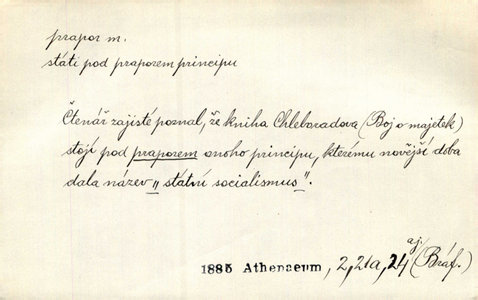 prapor m.
státi pod praporem principu
Čtenář zajisté poznal, že kniha Chleboradova (Boj o majetek)
stojí pod praporem onoho principu, kterému novější doba
dala název „státní socialismus".
1885 Athenaeum, 2, 21a, 24 aj. (Bráf.)